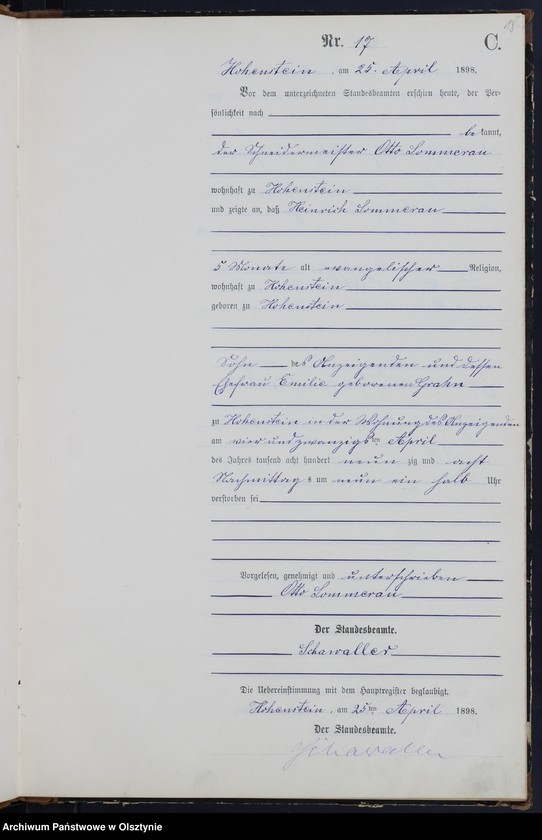 Nr. 17
C.
Hohenstein, am 25. April 1898.
Vor dem unterzeichneten Standesbeamten erschien heute, der Per-
sönlichkeit nach
be kannt,
der Schneidermeister Otto Sommerau
wohnhaft zu Hohenstein
und zeigte an, daß Heinrich Sommerau
5 Monate alt evangelischer Religion,
wohnhaft zu Hohenstein
geboren zu Hohenstein
Sohn des Anzeigenden und dessen
Ehefrau Emilie geborenen Grahn
zu Hohenstein in der Wohnung des Anzeigenden
am vier und zwanzigsten April
des Jahres tausend acht hundert neun zig und acht
Nachmittag s um neun ein halb Uhr
verstorben sei
Vorgelesen, genehmigt und unterschrieben
Otto Sommerau
Der Standesbeamte.
Schawaller
Die Uebereinstimmung mit dem Hauptregister beglaubigt.
Hohenstein, am 25ten April 1898.
Der Standesbeamte.
Schawaller
Archiwum Państwowe w Olsztynie